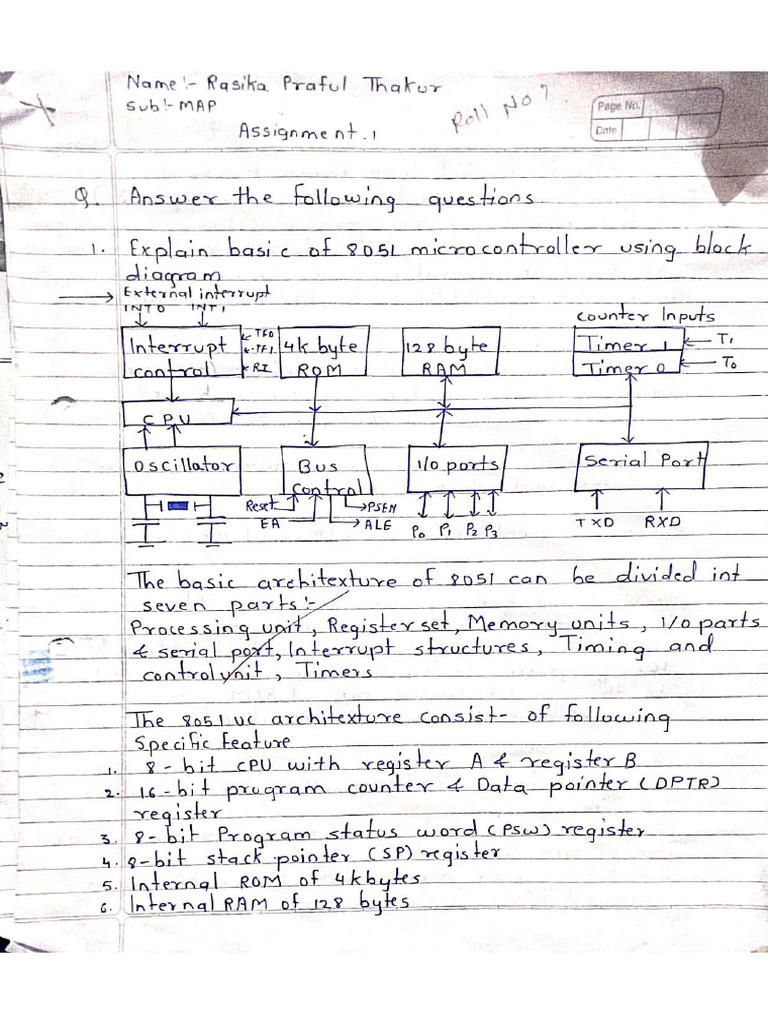 Name:- Rasika Praful Thakur
Sub:- MAP
Roll No 7
Page No.
Date
Assignment. 1
Q. Answer the following questions
1. Explain basic of 8051 microcontroller using block
diagram
External interrupt
INT0 INT1
Counter Inputs
Interrupt
control
TF0
TF1
RI
4k byte
ROM
128 byte
RAM
Timer 1
Timer 0
T1
T0
CPU
Oscillator
Bus
control
I/o ports
Serial Port
Reset
EA
PSEN
ALE
P0 P1 P2 P3
TXD RXD
The basic architexture of 8051 can be divided int
seven parts:-
Processing unit, Register set, Memory units, I/o parts
& serial port, Interrupt structures, Timing and
control unit, Timers
The 8051 uc architexture consist- of following
Specific feature
1. 8-bit CPU with register A & register B
2. 16-bit program counter & Data pointer (DPTR)
register
3. 8-bit Program status word (PSW) register
4. 8-bit stack pointer (SP) register
5. Internal ROM of 4kbytes
6. Internal RAM of 128 bytes